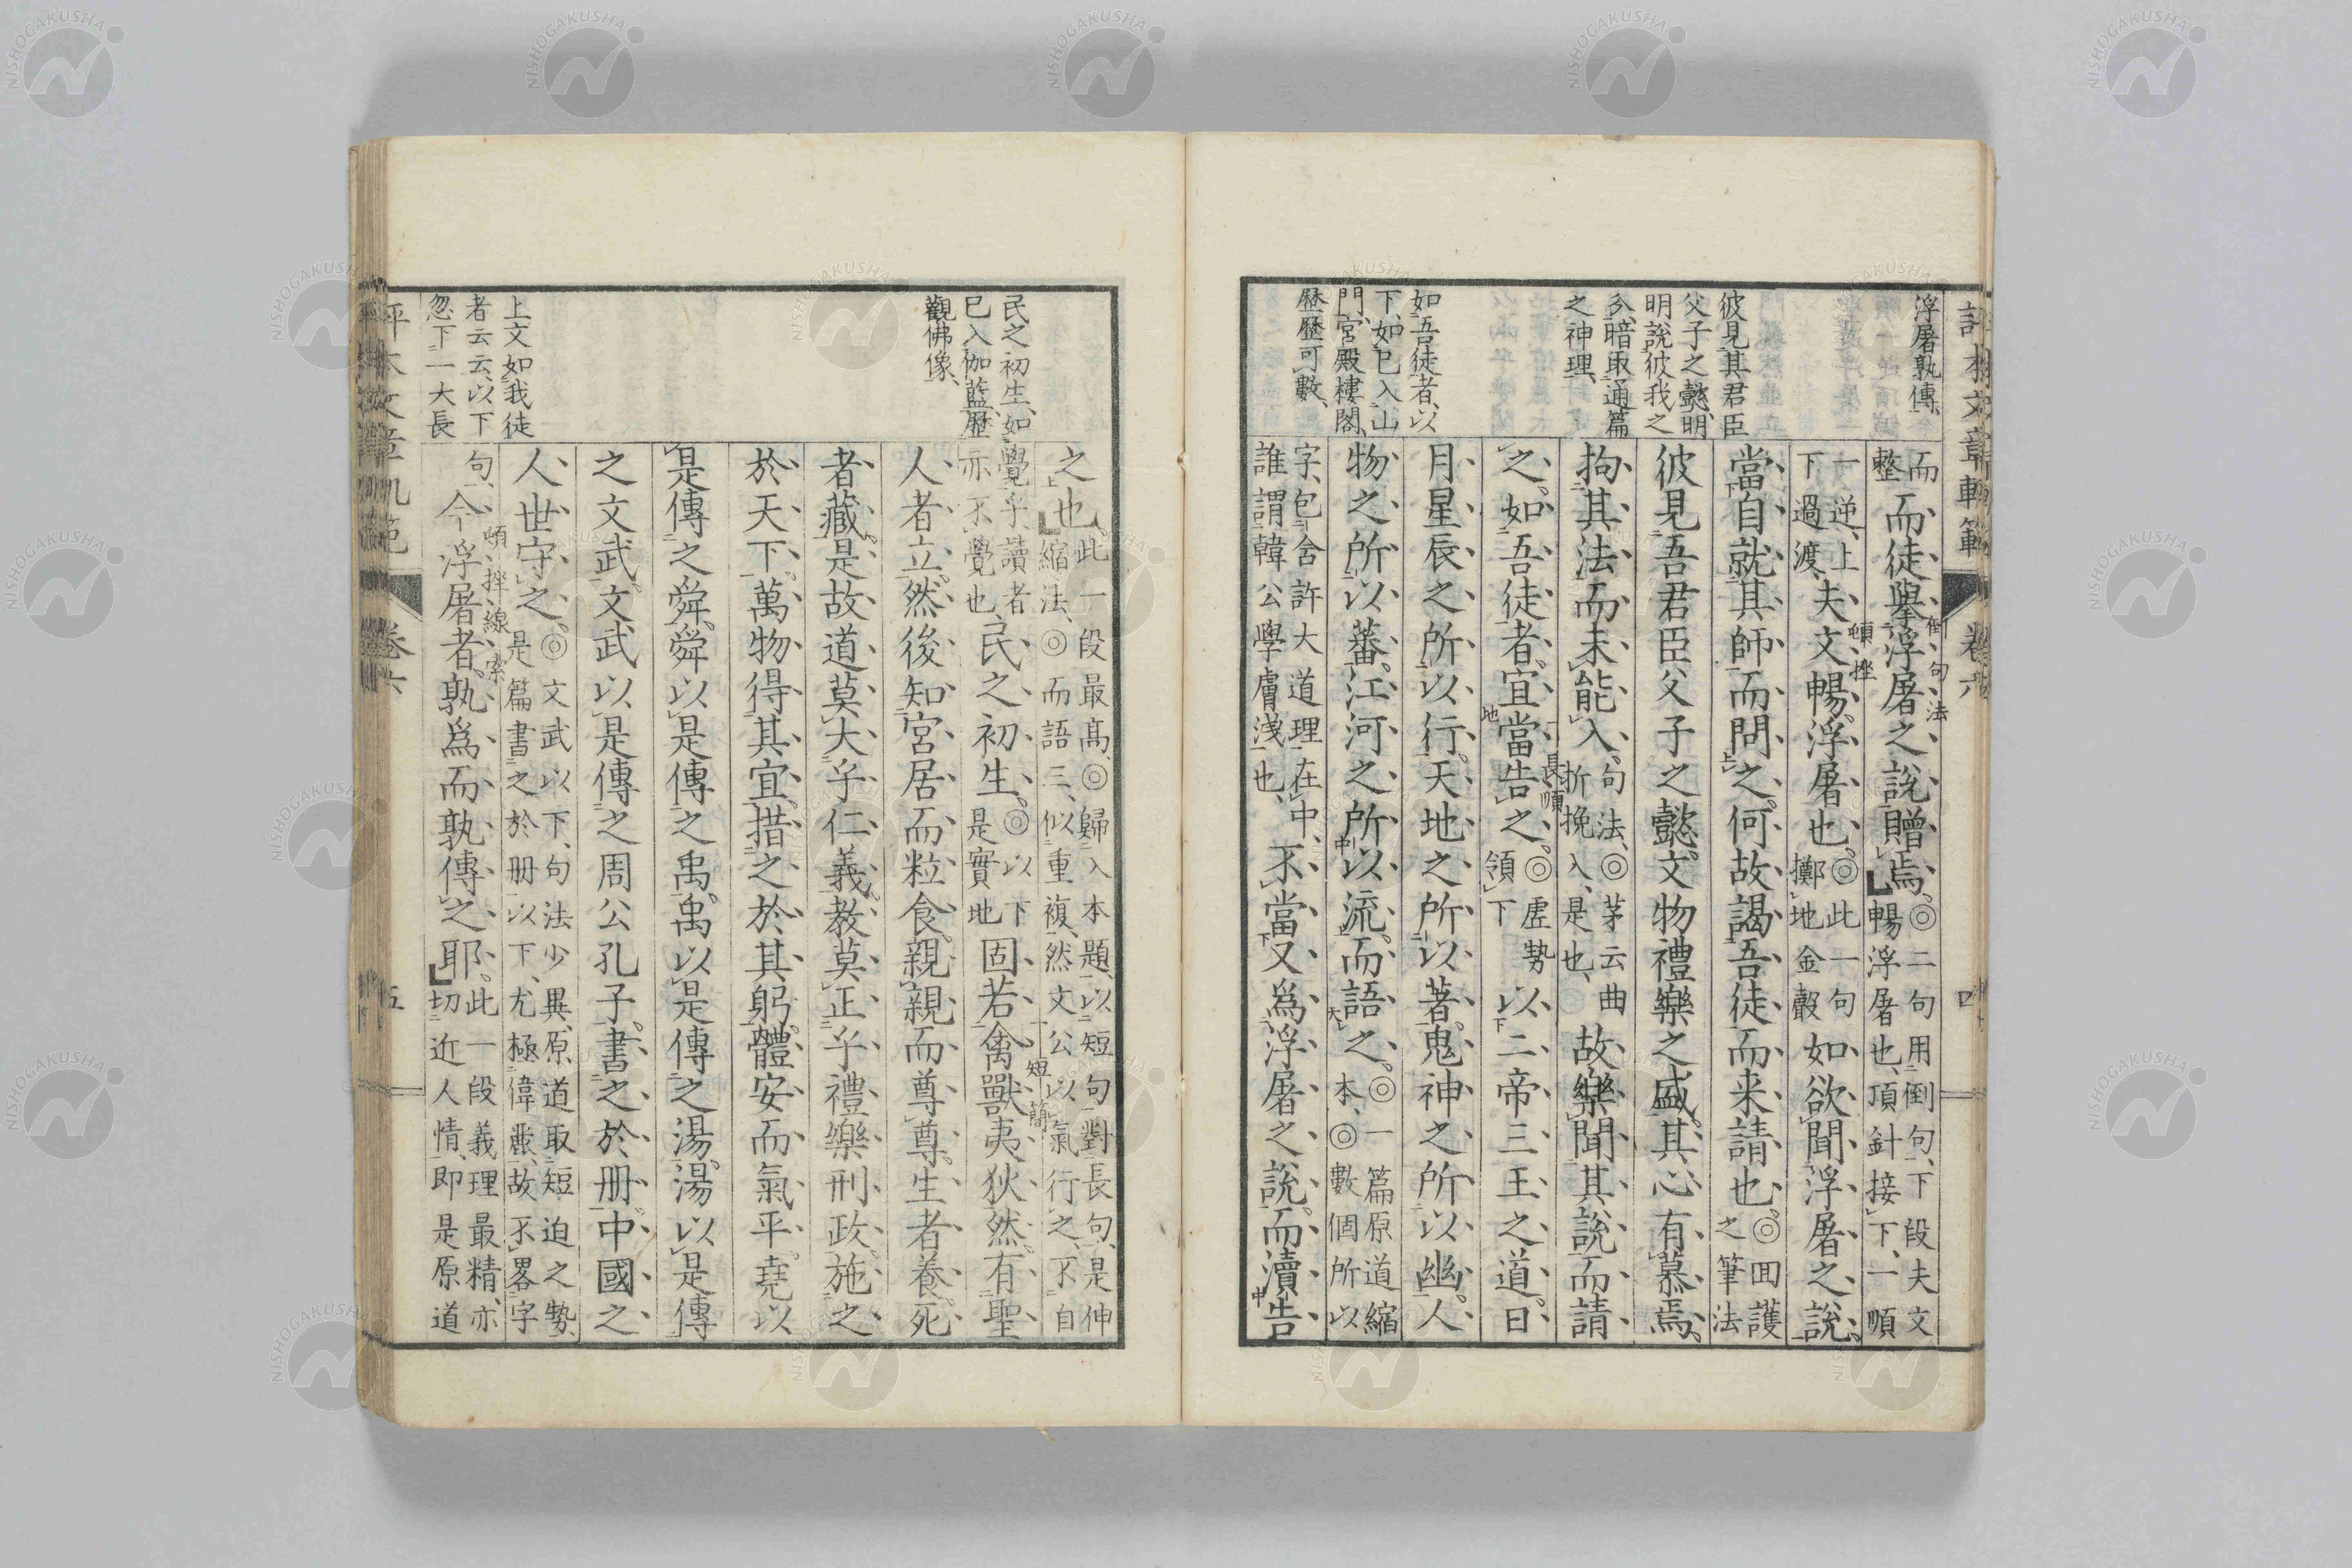 浮屠孰傳、
彼見其君臣
父子之懿、明
明說彼我之
分、暗取通篇
之神理、
如吾徒者、以
下、如已入山
門、宮殿樓閣、
歷歷可數、
而
整
而徒擧浮屠之說贈焉。
倒句法
◎二句用倒句、下段夫文
暢浮屠也、頂針接下、一順
一逆、上
下過渡、
夫文暢。浮屠也。
頓挫
◎此一句
擲地金聲
如欲聞浮屠之說。
當自就其師而問之。何故謁吾徒而来請也。
◎回護
之筆法
彼見吾君臣父子之懿。文物禮樂之盛。其心有慕焉。
拘其法而未能入。
句法、◎茅云曲
折挽入、是也、
故樂聞其說而請
之。如吾徒者。宜當告之。
長順
◎虛勢
領下
以二帝三王之道。日
月星辰之所以行。天地之所以著。鬼神之所以幽。人
物之所以蕃。江河之所以流。而語之。
◎一篇原道縮
本、◎數個所以
字、包含許大道理在中、
誰謂韓公學膚淺也、
不當又為浮屠之說。而瀆告
卷六
四
民之初生、如
已入伽藍、歷
觀佛像、
上文如我徒
者云云、以下
忽下一大長
之也。
此一段最高、◎歸入本題、以短句對長句、是伸
縮法、◎而語三、似重複、然文公以氣行之、不自
覺乎、讀者
亦不覺也、
民之初生。
◎以下
是實地
固若禽獸夷狄然。有聖
短簡
人者立。然後知宮居而粒食。親親而尊尊。生者養。死
者藏。是故道莫大乎仁義。教莫正乎禮樂刑政。施之
於天下。萬物得其宜。措之於其躬。體安而氣平。堯以
是傳之舜。舜以是傳之禹。禹以是傳之湯。湯以是傳
之文武。文武以是傳之周公孔子。書之於册。中國之
人、世守之。
◎文武以下、句法少異、原道取短迫之勢、
是篇書之於册以下、尤極偉觀、故不畧字
句、
頓挫線索
今浮屠者。孰爲而孰傳之耶。
此一段義理最精、亦
切近人情、即是原道
五